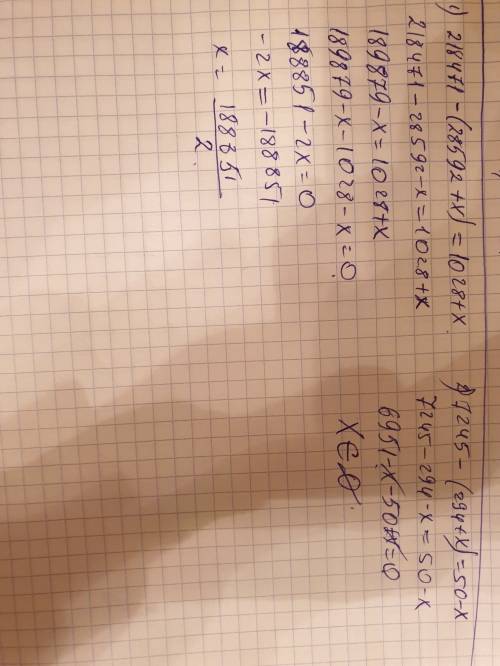 1) 218471-(28592+x)=1028+x
218471-28592-x=1028+x
189879-x=1028+x
189879-x-1028-x=0
188851-2x=0
-2x=-188851
x= 188851/2
2) 7245-(294+x)=50-x
7245-294-x=50-x
6951-x-50+x=0
x∈∅